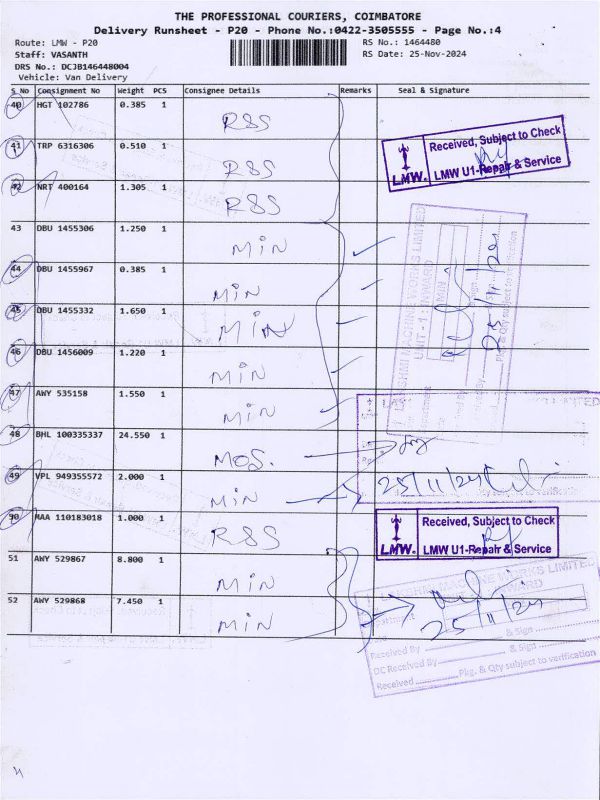 THE PROFESSIONAL COURIERS, COIMBATORE
Delivery Runsheet - P20 - Phone No.:0422-3505555 - Page No.:4
Route: LMW - P20 RS No.: 1464480
Staff: VASANTH RS Date: 25-Nov-2024
DRS No.: DCJB146448004
Vehicle: Van Delivery
S No Consignment No Weight PCS Consignee Details Remarks Seal & Signature
40 HGT 102786 0.385 1 RSS
41 TRP 6316306 0.510 1 RSS
Received, Subject to Check
LMW. LMW U1-Repair & Service
42 NRT 400164 1.305 1 RSS
43 DBU 1455306 1.250 1 MIN
44 DBU 1455967 0.385 1 MIN
45 DBU 1455332 1.650 1 MIN
46 DBU 1456009 1.220 1 MIN
47 AWY 535158 1.550 1 MIN
LAKSHMI MACHINE WORKS LIMITED
UNIT - 1 : INWARD
MIN
25/11/24
Pkg. & Qty subject to verification
48 BHL 100335337 24.550 1 MOS.
49 VPL 949355572 2.000 1 MIN
25/11/24
50 MAA 110183018 1.000 1 RSS
Received, Subject to Check
LMW. LMW U1-Repair & Service
51 AWY 529867 8.800 1 MIN
52 AWY 529868 7.450 1 MIN
LAKSHMI MACHINE WORKS LIMITED
INWARD
25/11/24
Received By & Sign
DC Received By & Sign
Received Pkg. & Qty subject to verification